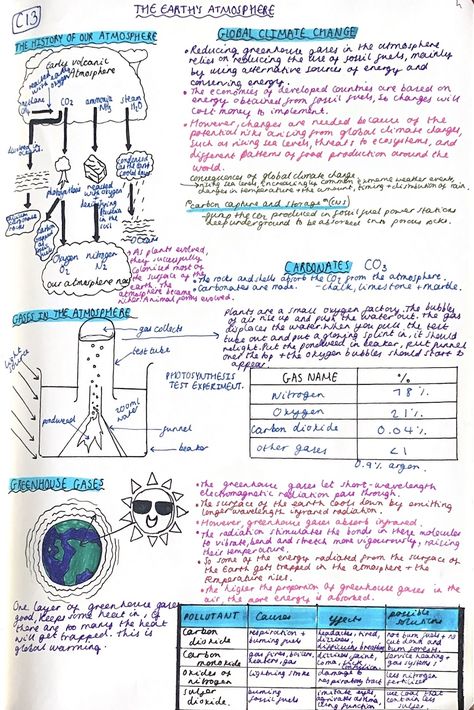 C13
THE EARTH'S ATMOSPHERE
THE HISTORY OF OUR ATMOSPHERE
Early volcanic
Atmosphere
reacted
with oxygen
CO2
ammonia
NH3
steam
H2O
photosynthesis
reacted
with oxygen
condensed
as the Earth
cooled
Oceans
Oxygen
O2
nitrogen
N2
our atmosphere now
• As plants evolved,
they successfully
colonised most of
the surface of
the earth.
the atmosphere
GLOBAL CLIMATE CHANGE
• Reducing greenhouse gases in the atmosphere
relies on reducing the use of fossil fuels, mainly
by using alternative sources of energy and
conserving energy.
• The economies of developed countries are based on
energy obtained from fossil fuels, so changes will
cost money to implement.
• However changes are needed because of the
potential risks arising from global climate change,
such as rising sea levels, threats to ecosystems, and
different patterns of food production around the
world.
consequences of global climate change
→ rising sea levels, increasingly common extreme weather events,
changes in temperature + the amount, timing + distribution of rain.
carbon capture and storage
pump the CO2 produced in fossil fuel power stations
deep underground to be absorbed into porous rocks.
CARBONATES CO3
• The rocks and shells absorb the CO2 from the atmosphere.
• Carbonates are made. - chalk, limestone + marble.
GASES IN THE ATMOSPHERE
gas collects
test tube
light
source
PHOTOSYNTHESIS
TEST EXPERIMENT.
200ml
water
pondweed
funnel
beaker
Plants are a small oxygen factory. The bubbles
of air rise up and push the water out. The gas
displaces the water. When you pull the test
tube out and put a glowing splint in, it should
relight. Put the pondweed in beaker, put funnel
over the top + the oxygen bubbles should start to
appear.
GAS NAME %
Nitrogen 78%
Oxygen 21%
Carbon dioxide 0.04%
other gases <1
0.9% argon.
GREENHOUSE GASES
• The greenhouse gases let short-wavelength
electromagnetic radiation pass through.
• The surface of the earth cools down by emitting
longer wavelength infrared radiation.
• However greenhouse gases absorb infrared.
• The radiation stimulates the bonds in these molecules
to vibrate, bend and stretch more vigorously, raising
their temperature.
• So some of the energy radiated from the surface of
the Earth gets trapped in the atmosphere + the
temperature rises.
• The higher the proportion of greenhouse gases in
the air, the more energy is absorbed.
One layer of greenhouse gases
good, keeps some heat in, if
there are too many the heat
will get trapped. This is
global warming.
POLLUTANT Causes Effects possible solutions
Carbon dioxide respiration + burning fuels
Carbon monoxide gas fires, boilers, heaters, gas
oxides of nitrogen lightning strike damage to respiratory tract less nitrogen fertilizer
sulfur dioxide. burning fossil fuels irritate eyes use coal that contains less sulfur.